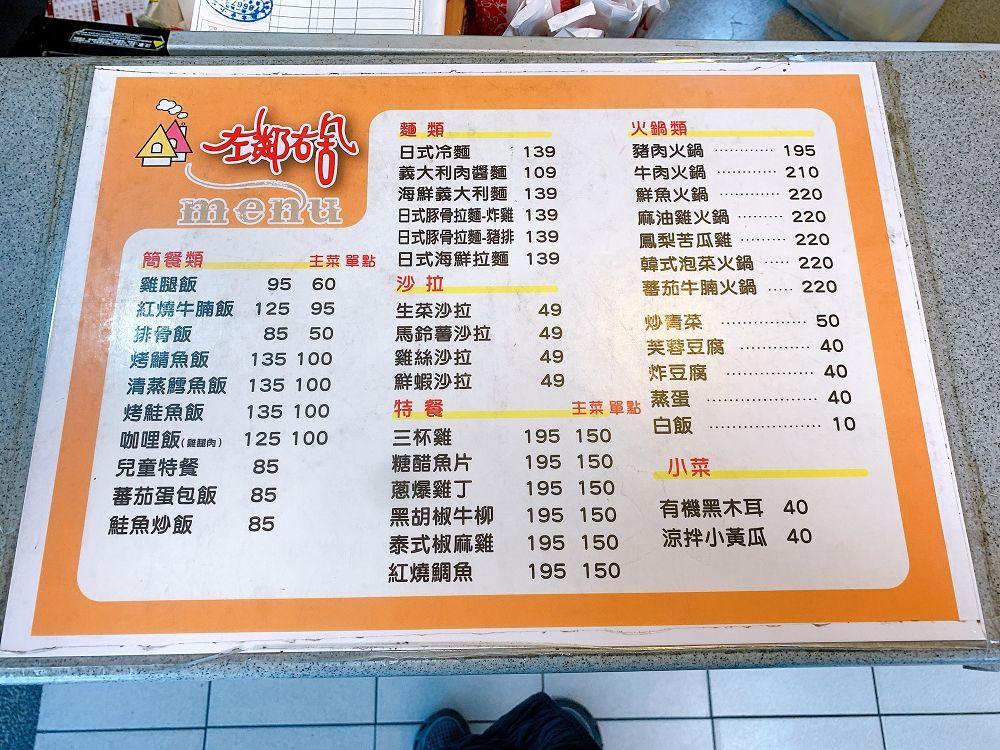 左鄰右舍
menu
簡餐類 主菜 單點
雞腿飯 95 60
紅燒牛腩飯 125 95
排骨飯 85 50
烤鯖魚飯 135 100
清蒸鱈魚飯 135 100
烤鮭魚飯 135 100
咖哩飯(雞腿肉) 125 100
兒童特餐 85
蕃茄蛋包飯 85
鮭魚炒飯 85
麵類
日式冷麵 139
義大利肉醬麵 109
海鮮義大利麵 139
日式豚骨拉麵-炸雞 139
日式豚骨拉麵-豬排 139
日式海鮮拉麵 139
沙拉
生菜沙拉 49
馬鈴薯沙拉 49
雞絲沙拉 49
鮮蝦沙拉 49
特餐 主菜 單點
三杯雞 195 150
糖醋魚片 195 150
蔥爆雞丁 195 150
黑胡椒牛柳 195 150
泰式椒麻雞 195 150
紅燒鯛魚 195 150
火鍋類
豬肉火鍋 ············ 195
牛肉火鍋 ············ 210
鮮魚火鍋 ············ 220
麻油雞火鍋 ········· 220
鳳梨苦瓜雞 ········· 220
韓式泡菜火鍋 ····· 220
蕃茄牛腩火鍋 ····· 220
炒青菜 ················ 50
芙蓉豆腐 ·············· 40
炸豆腐 ················· 40
蒸蛋 ···················· 40
白飯 ···················· 10
小菜
有機黑木耳 40
涼拌小黃瓜 40